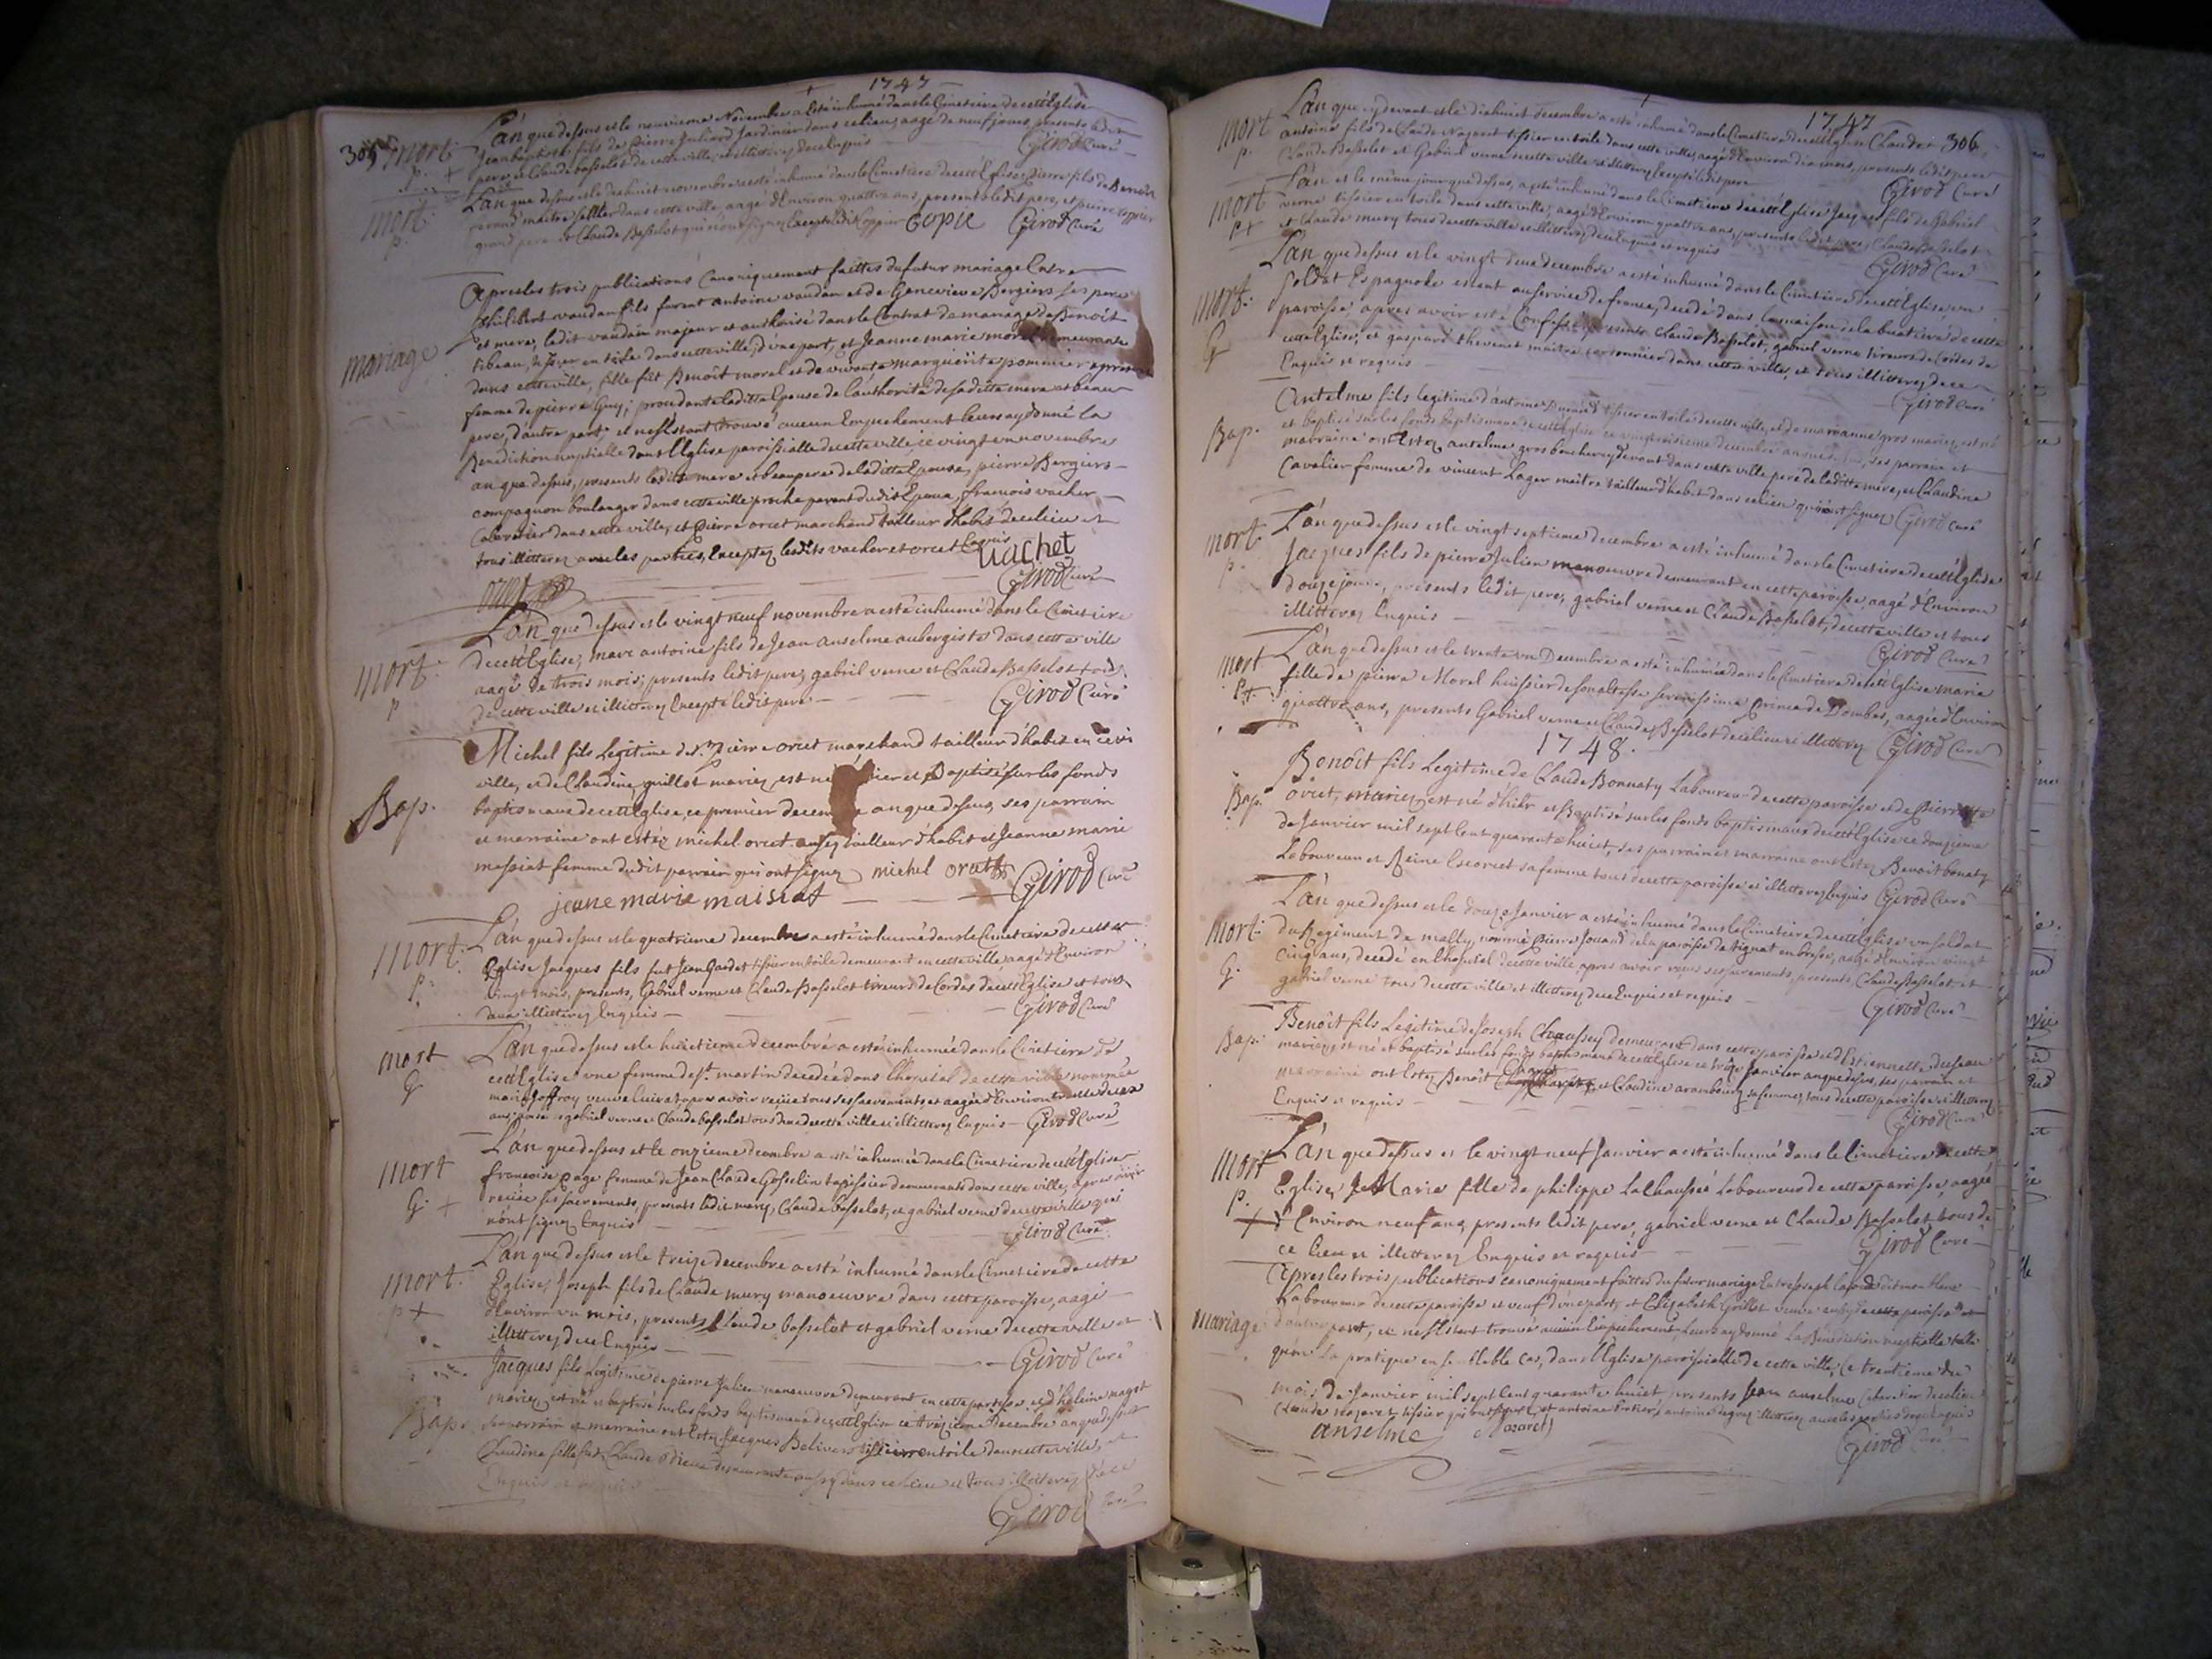 1747
305 mort
L'an que dessus et le neuvieme Novembre a esté inhumé dans le Cimetiere de cett Eglise
Jean baptiste fils de Pierre Juliard Jardinier dans ce lieu, aagé de neuf jours, presents ledit
pere, et Claude basselot de cette ville, et illitterez de ce enquis Girod Curé
mort
p.
L'an que dessus et le dixhuit novembre a esté inhumé dans le Cimetiere de cett Eglise, Pierre fils de Benoit
maitre sellier dans cette ville, aagé d'Environ quattre ans, presents ledit pere, et pierre
grand pere et Claude Basselot qui n'ont signez Excepté ledit Coppier Copie Girod Curé
mariage
Apres les trois publications Canoniquement faittes du futur mariage Entre
philibert vaudan fils furent antoine vaudan et de Genevieve Bergiers ses pere
et mere, ledit vaudan majeur et authorisé dans le Contrat de mariage de Benoit
tibeau, tissier en toile dans cette ville, d'une part, et Jeanne marie morel demeurante
dans cette ville, fille fût Benoît morel et de vivante marguerite pommier apresent
femme de pierre Guy; procedante laditte Epouse de l'authorité de sa ditte mere et beau
pere, d'autre part, et ne s'Estant trouvé aucun Empechement leurs ay donné la
Benediction nuptialle dans l'Eglise paroissialle de cette ville, ce vingt un novembre
an que dessus, presents lesdits mere et beau pere de laditte Epouse, pierre Bergiers
compagnon boulanger dans cette ville proche parent dudit Epoux, francois vacher
Cabaretier dans cette ville, et Pierre orcet marchand tailleur d'habit de ce lieu et
tous illitterez avec les parties, Exceptez lesdits vacher et orcet Enquis vachet
orcet Girod Curé
mort
p
L'an que dessus et le vingt neuf novembre a esté inhumé dans le Cimetiere
de cett Eglise, marc antoine fils de Jean anselme aubergiste dans cette ville
aagé de trois mois; presents ledit pere, gabriel verne et Claude Basselot tous
de cette ville et illitterez Excepté ledit pere Girod Curé
Bap.
Michel fils Legitime de Sr. Pierre orcet marchand tailleur d'habit en cette
ville, et de Claudine guillot mariez, est né hier et Baptisé sur les fonds
baptismaux de cett Eglise, ce premier decembre an que dessus, ses parrain
et marraine ont estéz michel orcet aussy tailleur d'habit et Jeanne marie
messiat femme dudit parrain qui ont signez michel orcett Girod Curé
jeane marie maisiat
mort
p.
L'an que dessus et le quatrieme decembre a esté inhumé dans le Cimetiere de cette
Eglise Jacques fils fut Jean Gardet tissier en toile demeurant en cette ville, aagé d'Environ
vingt mois, presents, Gabriel verne et Claude Basselot tireurs de Cordes de cett Eglise et tous
deux illitterez Enquis Girod Curé
mort
G
L'an que dessus et le huictieme decembre a esté inhumée dans le Cimetiere de
cett Eglise une femme de St. martin decedée dans l'hopital de cette ville nommée
marie Joffroy veuve apres avoir reçue tous ses sacrements, et aagée d'Environ trente deux
ans; presents gabriel verne et Claude basselot tous deux de cette ville et illitterez Enquis Girod Curé
mort
G. +
L'an que dessus et le onzieme decembre a esté inhumée dans le Cimetiere de cett Eglise
francoise page femme de Jean Claude Gosselin tapissier demeurants dans cette ville, apres avoir
reçue ses sacrements, presents ledit mary, Claude basselot, et gabriel verne de cette ville qui
n'ont signez Enquis Girod Curé
mort.
p +
L'an que dessus et le treize decembre a esté inhumé dans le Cimetiere de cette
Eglise, Joseph fils de Claude mury manoeuvre dans cette paroisse, aagé
d'Environ un mois, presents Claude basselot et gabriel verne de cette ville et
illitterez de ce Enquis Girod Curé
Bap.
Jacques fils Legitime de pierre Julien manoeuvre demeurant en cette paroisse et d'heleine
mariez, est né et baptisé sur les fonds baptismaux de cett Eglise ce treizieme Decembre an que dessus
ses parrain et marraine ont Estez Jacques tissier en toile dans cette ville, et
Claudine fille fut Claude demeurante aussy dans ce lieu et tous illitterez de ce
Enquis et requis Girod Curé
1747
306
mort
p.
L'an que cy devant et le dixhuict Decembre a esté inhumé dans le Cimetiere de cett Eglise Claude
antoine fils de Claude Nazaret tissier en toile dans cette ville, aagé d'Environ dix mois, presents ledit pere
Claude Basselot et Gabriel verne de cette ville et illitterez Excepté ledit pere Girod Curé
mort
p +
L'an et le même jour que dessus, a esté inhumé dans le Cimetiere de cett Eglise Jacques fils de Gabriel
verne tissier en toile dans cette ville, aagé d'Environ quattre ans, presents ledit pere, Claude Basselot
et Claude mury tous de cette ville et illitterez de ce Enquis et requis Girod Curé
mort.
G
L'an que dessus et le vingt deux decembre a esté inhumé dans le Cimetiere de cett Eglise, un
soldat Espagnole estant au service de france, decedé dans la maison de la buatiere de cette
paroisse, apres avoir esté Confessé, presents Claude Basselot, gabriel verne tireurs de Cordes de
cett Eglise, et gaspard thevenet maitre cordonnier dans cette ville, et tous illitterez de ce
Enquis et requis Girod Curé
Bap.
Antelme fils legitime d'antoine tissier en toile de cette ville, et de marianne gros mariez, est né
et baptisé sur les fonds baptismaux de cett Eglise ce vingtroisieme decembre an que dessus, ses parrain et
marraine ont Estez antelme gros boucher cy devant dans cette ville pere de laditte mere, et Claudine
Cavalier femme de vincent Lager maitre tailleur d'habit dans ce lieu qui n'ont signez Girod Curé
mort
p.
L'an que dessus et le vingt septieme decembre a esté inhumé dans le Cimetiere de cett Eglise
Jacques fils de pierre Julien manoeuvre demeurant en cette paroisse aagé d'Environ
douze jours, presents ledit pere, gabriel verne et Claude Basselot, de cette ville et tous
illitterez Enquis Girod Curé
mort
p +
L'an que dessus et le trente un Decembre a esté inhumée dans le Cimetiere de cett Eglise marie
fille de pierre Morel huissier de son altesse serenissime Prince de Dombes, aagée d'Environ
quattre ans, presents Gabriel verne et Claude Basselot de ce lieu et illitterez Girod Curé
1748.
Bap.
Benoît fils Legitime de Claude Bonnaty Laboureur de cette paroisse et de Pierrette
orcet, mariez, est né d'hier et Baptisé sur les fonds baptismaux de cett Eglise ce douzieme
de Janvier mil sept Cent quarante huict, ses parrain et marraine ont Estez Benoit bonaty
Laboureur et Reine sa femme tous de cette paroisse et illitterez Enquis Girod Curé
mort.
G.
L'an que dessus et le douze Janvier a esté inhumé dans le Cimetiere de cett Eglise un soldat
du Regiment de mally, nommé Pierre Jouand de la paroisse de tignat en bresse, aagé d'Environ vingt
cinq ans, decedé en l'hopital de cette ville, apres avoir reçus ses sacrements, presents, Claude Basselot et
gabriel verne tous de cette ville et illitterez de ce Enquis et requis Girod Curé
Bap.
Benoît fils Legitime de Joseph Chaussey demeurant dans cette paroisse et d'Estiennette
mariez, est né et baptisé sur les fonds baptismaux de cett Eglise ce treize Janvier an que dessus, ses parrain et
marraine ont Estez Benoît et Claudine arambourg sa femme, tous de cette paroisse et illitterez
Enquis et requis Girod Curé
mort
p.
+
L'an que dessus et le vingt neuf Janvier a esté inhumé dans le Cimetiere de cette
Eglise, Marie fille de philippe Lalhaussée Laboureur de cette paroisse, aagée
d'Environ neuf ans, presents ledit pere, gabriel verne et Claude Basselot tous de
ce lieu et illitterez Enquis et requis Girod Curé
mariage
Apres les trois publications canoniquement faittes du futur mariage Entre Joseph
Laboureur de cette paroisse et veuf d'une part, et Elizabeth Grillet veuve aussy de cette paroisse
d'autre part, et ne s'Estant trouvé aucun Empechement Leurs ay donné La Benediction nuptialle telle
qu'on la pratique en semblable Cas, dans l'Eglise paroissialle de cette ville, Ce trentieme du
mois de Janvier mil sept Cent quarante huict presents Jean anselme Cabaretier de ce lieu
Claude nazaret tissier qui ont signez, et antoine antoine illitterez avec les parties de ce Enquis
anselme Nazaret Girod Curé